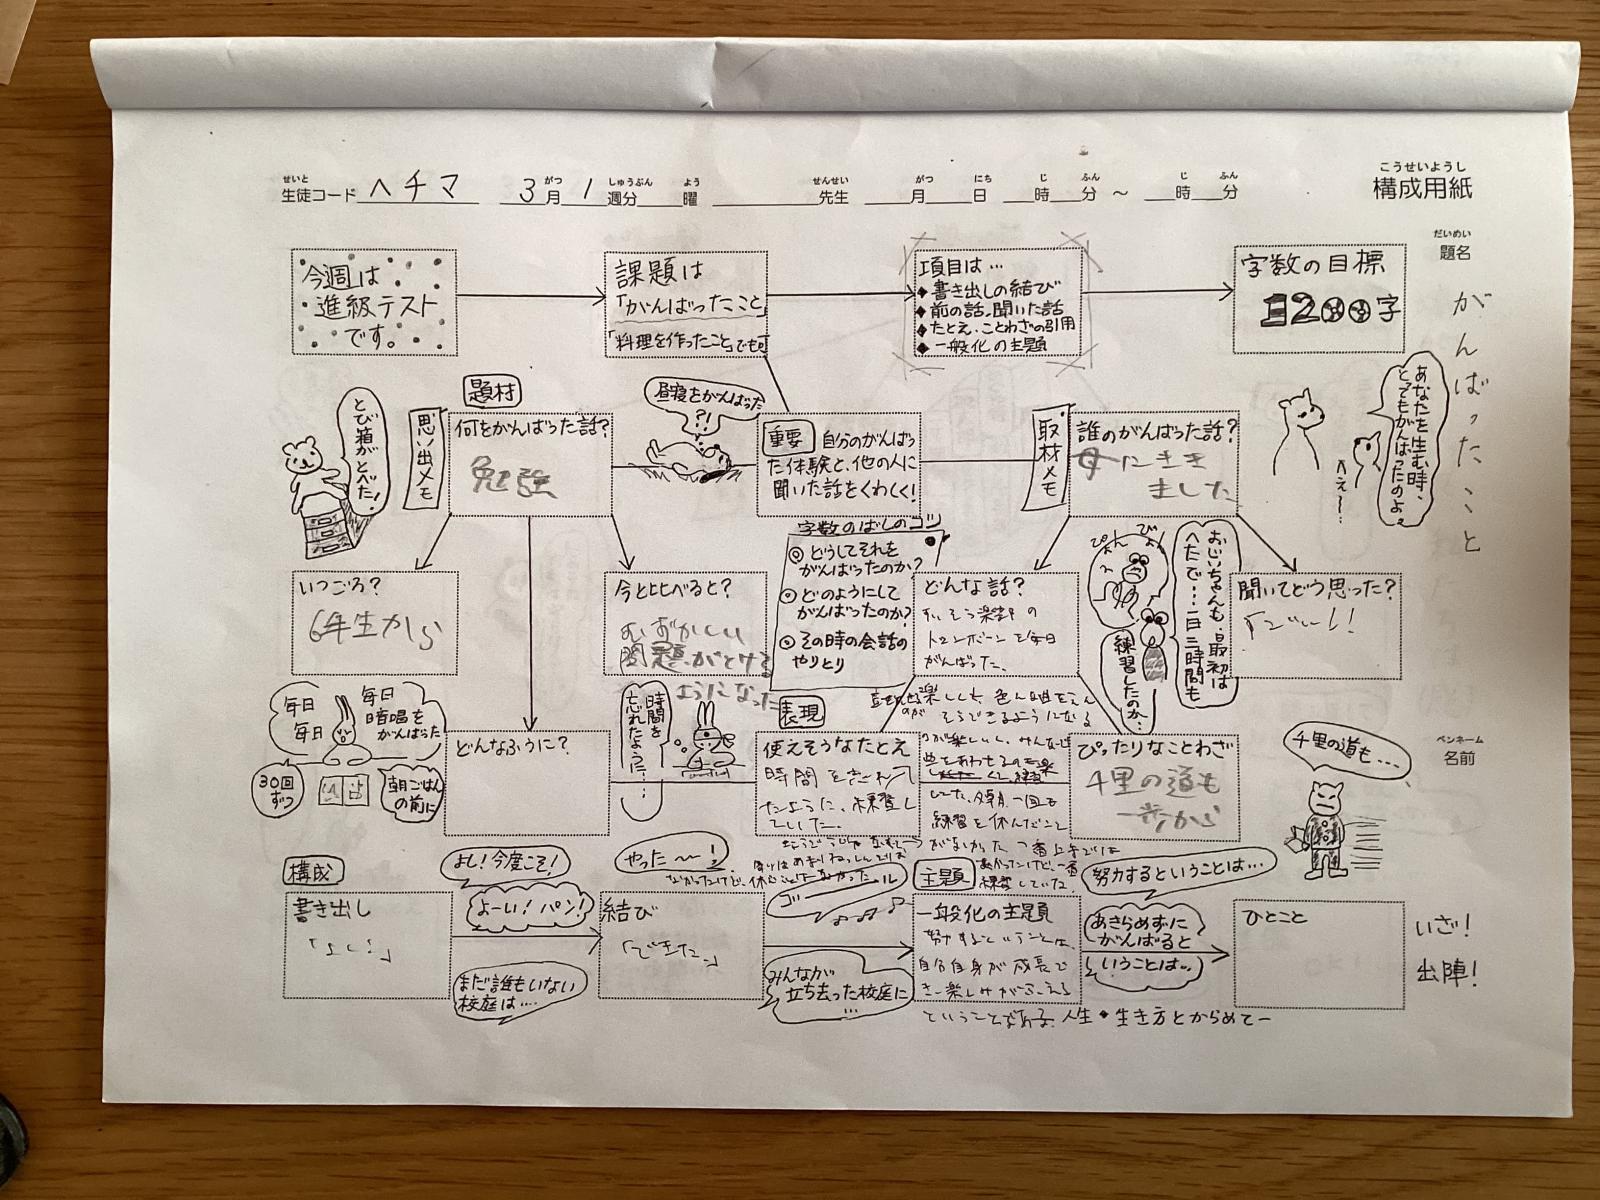 せいと
生徒コード ヘチマ 3月 1週分 曜 先生 月 日 時 分 ～ 時 分
がつ しゅうぶん よう せんせい がつ にち じ ふん じ ふん
こうせいようし
構成用紙
だいめい
題名
がんばったこと
ペンネーム
名前
今週は
進級テスト
です。
課題は
「がんばったこと」
「料理を作ったこと」でも可
項目は…
◆書き出しの結び
◆前の話、聞いた話
◆たとえ・ことわざの引用
◆一般化の主題
字数の目標
1200字
とび箱がとべた!
思い出メモ
題材
何をがんばった話?
勉強
昼寝をがんばった
?!
重要 自分のがんばっ
た体験と、他の人に
聞いた話をくわしく!
取材メモ
誰のがんばった話?
母にきき
ました
あなたを生む時、
とてもがんばったのよ。
へえ～…
いつごろ?
6年生から
今と比べると?
むずかしい
問題がとける
ようになった
字数のばしのコツ
◎どうしてそれを
がんばったのか?
◎どのようにして
がんばったのか?
◎その時の会話の
やりとり
どんな話?
すいそう楽部の
トロンボーンを毎日
がんばった。
ぴょん ぴょん
おじいちゃんも、最初は
へたで…一日三時間も
練習したのか…
聞いてどう思った?
すごーい!
毎日
毎日
毎日
暗唱を
がんばった
30回
ずつ
朝ごはん
の前に
どんなふうに?
時間を
忘れたように…
表現
使えそうなたとえ
時間をきわ
たように、練習し
ていた。
楽しくも 色んな曲をえん
そうできるようになる
のが楽しいし、みんなで
曲をあわせるのも楽
していた。毎朝一回も
練習を休んだこと
がなかった 一番上手では
なかったけど、一番
練習していた
なかったけど、休むことはなかった
ぴったりなことわざ
千里の道も
一歩から
千里の道も…
構成
書き出し
「よし!」
よし!今度こそ!
よーい!パン!
まだ誰もいない
校庭は…
やった～～!
結び
「できた。」
ゴール
みんなが
立ち去った校庭に
…
主題
一般化の主題
努力するということは、
自分自身が成長で
き、楽しみがふえる
ということである。人生・生き方とからめてー
努力するということは…
あきらめずに
がんばると
いうことは…
ひとこと
いざ!
出陣!